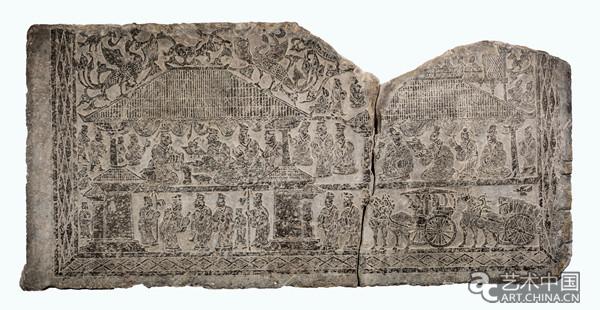 艺术中国
ART.CHINA.CN